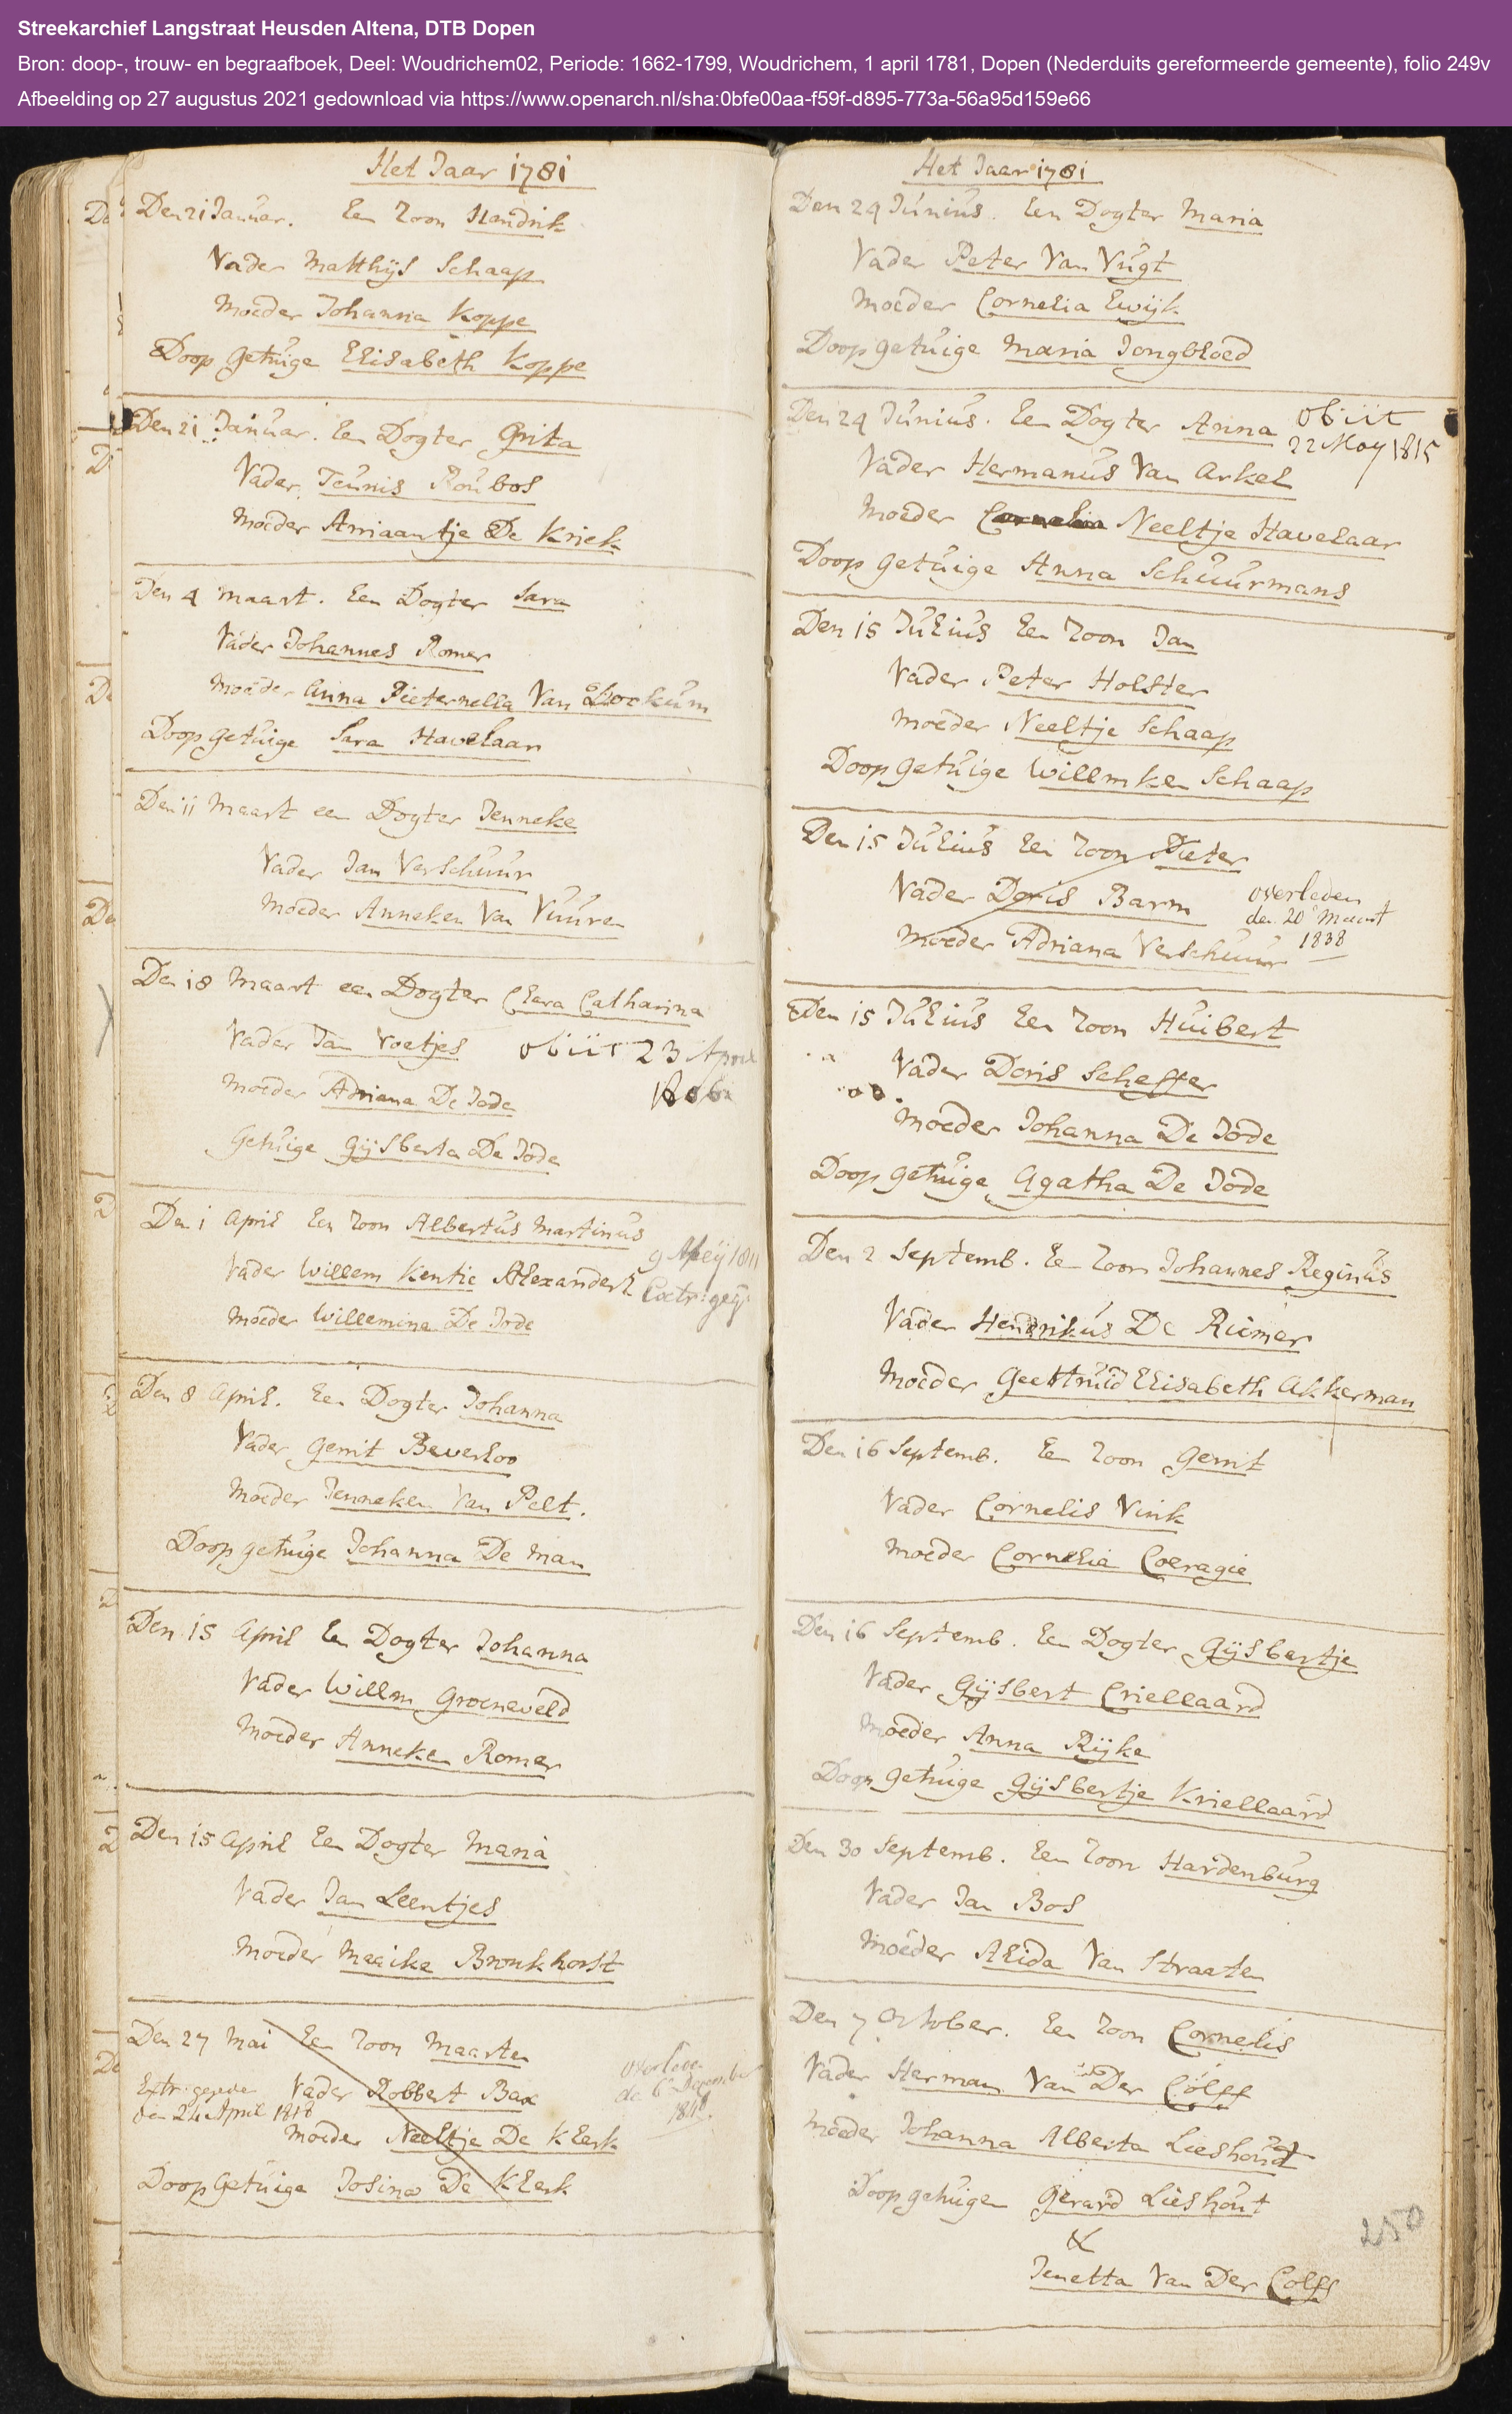 Streekarchief Langstraat Heusden Altena, DTB Dopen
Bron: doop-, trouw- en begraafboek, Deel: Woudrichem02, Periode: 1662-1799, Woudrichem, 1 april 1781, Dopen (Nederduits gereformeerde gemeente), folio 249v
Afbeelding op 27 augustus 2021 gedownload via https://www.openarch.nl/sha:0bfe00aa-f59f-d895-773a-56a95d159e66
Het Jaar 1781
Den 21 Januar. Een Zoon Handrik
Vader Matthijs Schaap
Moeder Johanna Koppe
Doop Getuige Elisabeth Koppe
Den 21 Januar. Een Dogter Grita
Vader Teunis Roubos
Moeder Ariaantje De Kriek
Den 4 Maart. Een Dogter Sara
Vader Johannes Romer
Moeder Anna Pieternella Van Dockum
Doop getuige Sara Havelaar
Den 11 Maart een Dogter Jenneke
Vader Jan Verschuur
Moeder Anneken Van Vuuren
Den 18 Maart een Dogter Clara Catharina
Vader Jan Voetjes obiit 23 April
Moeder Adriana De Jode
Getuige Gijsberta De Jode
Den 1 April Een Zoon Albertus Martinus
Vader Willem Kentie Alexanders
Moeder Willemina De Jode
Den 8 April. Een Dogter Johanna
Vader Gerrit Beverloo
Moeder Jenneken Van Pelt.
Doop getuige Johanna De Man
Den 15 April Een Dogter Johanna
Vader Willm Groeneveld
Moeder Anneken Romer
Den 15 April Een Dogter Maria
Vader Jan Leentjes
Moeder Maaike Bronkhorst
Den 27 Mai Een Zoon Maarten
Extr: gegeven Vader Robbert Bax overleden
den 24 April 1818 de 6e December
Moeder Neeltje De Klerk
Doop Getuige Josina De Klerk
Het Jaar 1781
Den 24 Junius. Een Dogter Maria
Vader Peter Van Vugt
Moeder Cornelia Ewijk
Doop getuige Maria Jongbloed
Den 24 Junius. Een Dogter Anna obiit
22 May 1815
Vader Hermanus Van Arkel
Moeder Cornelia Neeltje Havelaar
Doop getuige Anna Schuurmans
Den 15 Julius Een Zoon Jan
Vader Peter Holster
Moeder Neeltje Schaap
Doop getuige Willemken Schaap
Den 15 Julius Een Zoon Pieter
Vader Doris Barm overleden
den 20 Maart
Moeder Adriana Verschuur 1838
Den 15 Julius Een Zoon Huibert
Vader Doris Scheffer
Moeder Johanna De Jode
Doop getuige Agatha De Jode
Den 2 Septemb. Een Zoon Johannes Reginus
Vader Hendrikus De Riemer
Moeder Geertruid Elisabeth Akkerman
Den 16 Septemb. Een Zoon Gerrit
Vader Cornelis Vink
Moeder Cornelia Coeragie
Den 16 Septemb. Een Dogter Gijsbertje
Vader Gijsbert Criellaard
Moeder Anna Rijke
Doop getuige Gijsbertje Kriellaard
Den 30 Septemb. Een Zoon Hardenburg
Vader Jan Bos
Moeder Alida Van Straaten
Den 7 October. Een Zoon Cornelis
Vader Herman Van Der Colff
Moeder Johanna Alberta Lieshout
Doop getuigen Gerard Lieshout
&
Jenetta Van Der Colff
250